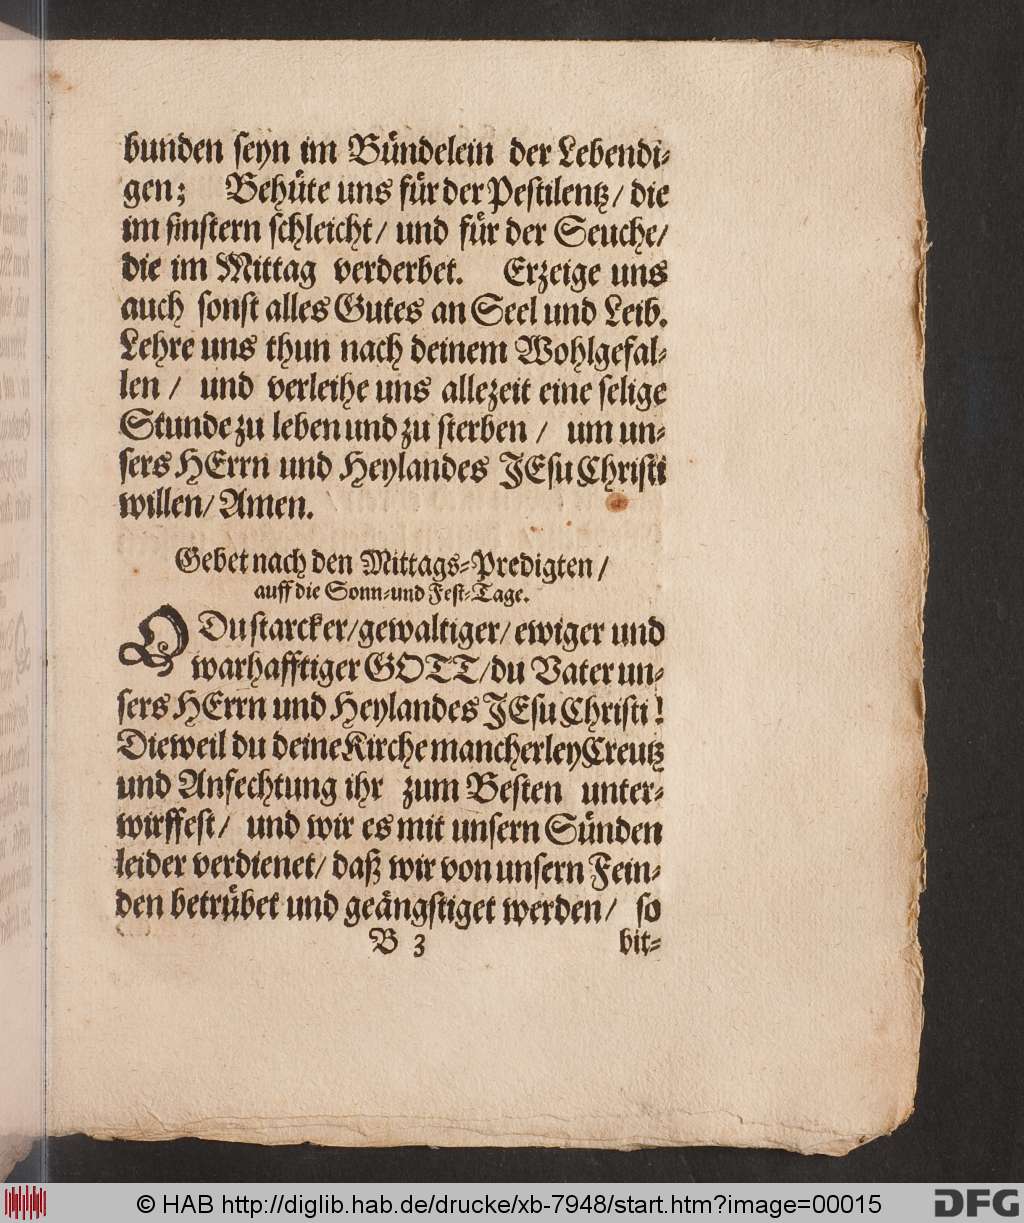 bunden ſeyn im Bündelein der Lebendi-
gen; Behüte uns für der Peſtilentz/ die
im finſtern ſchleicht/ und für der Seuche/
die im Mittag verderbet. Erzeige uns
auch ſonſt alles Gutes an Seel und Leib.
Lehre uns thun nach deinem Wohlgefal-
len / und verleihe uns allezeit eine ſelige
Stunde zu leben und zu ſterben / um un-
ſers HErrn und Heylandes JEſu Chriſti
willen/ Amen.
Gebet nach den Mittags-Predigten /
auff die Sonn-und Feſt-Tage.
O Du ſtarcker/gewaltiger/ ewiger und
warhafftiger GOTT/du Vater un-
ſers HErrn und Heylandes JEſu Chriſti!
Dieweil du deine Kirche mancherley Creutz
und Anfechtung ihr zum Beſten unter-
wirffeſt/ und wir es mit unſern Sünden
leider verdienet/ daß wir von unſern Fein-
den betrübet und geängſtiget werden/ ſo
B 3 bit-
© HAB http://diglib.hab.de/drucke/xb-7948/start.htm?image=00015 DFG